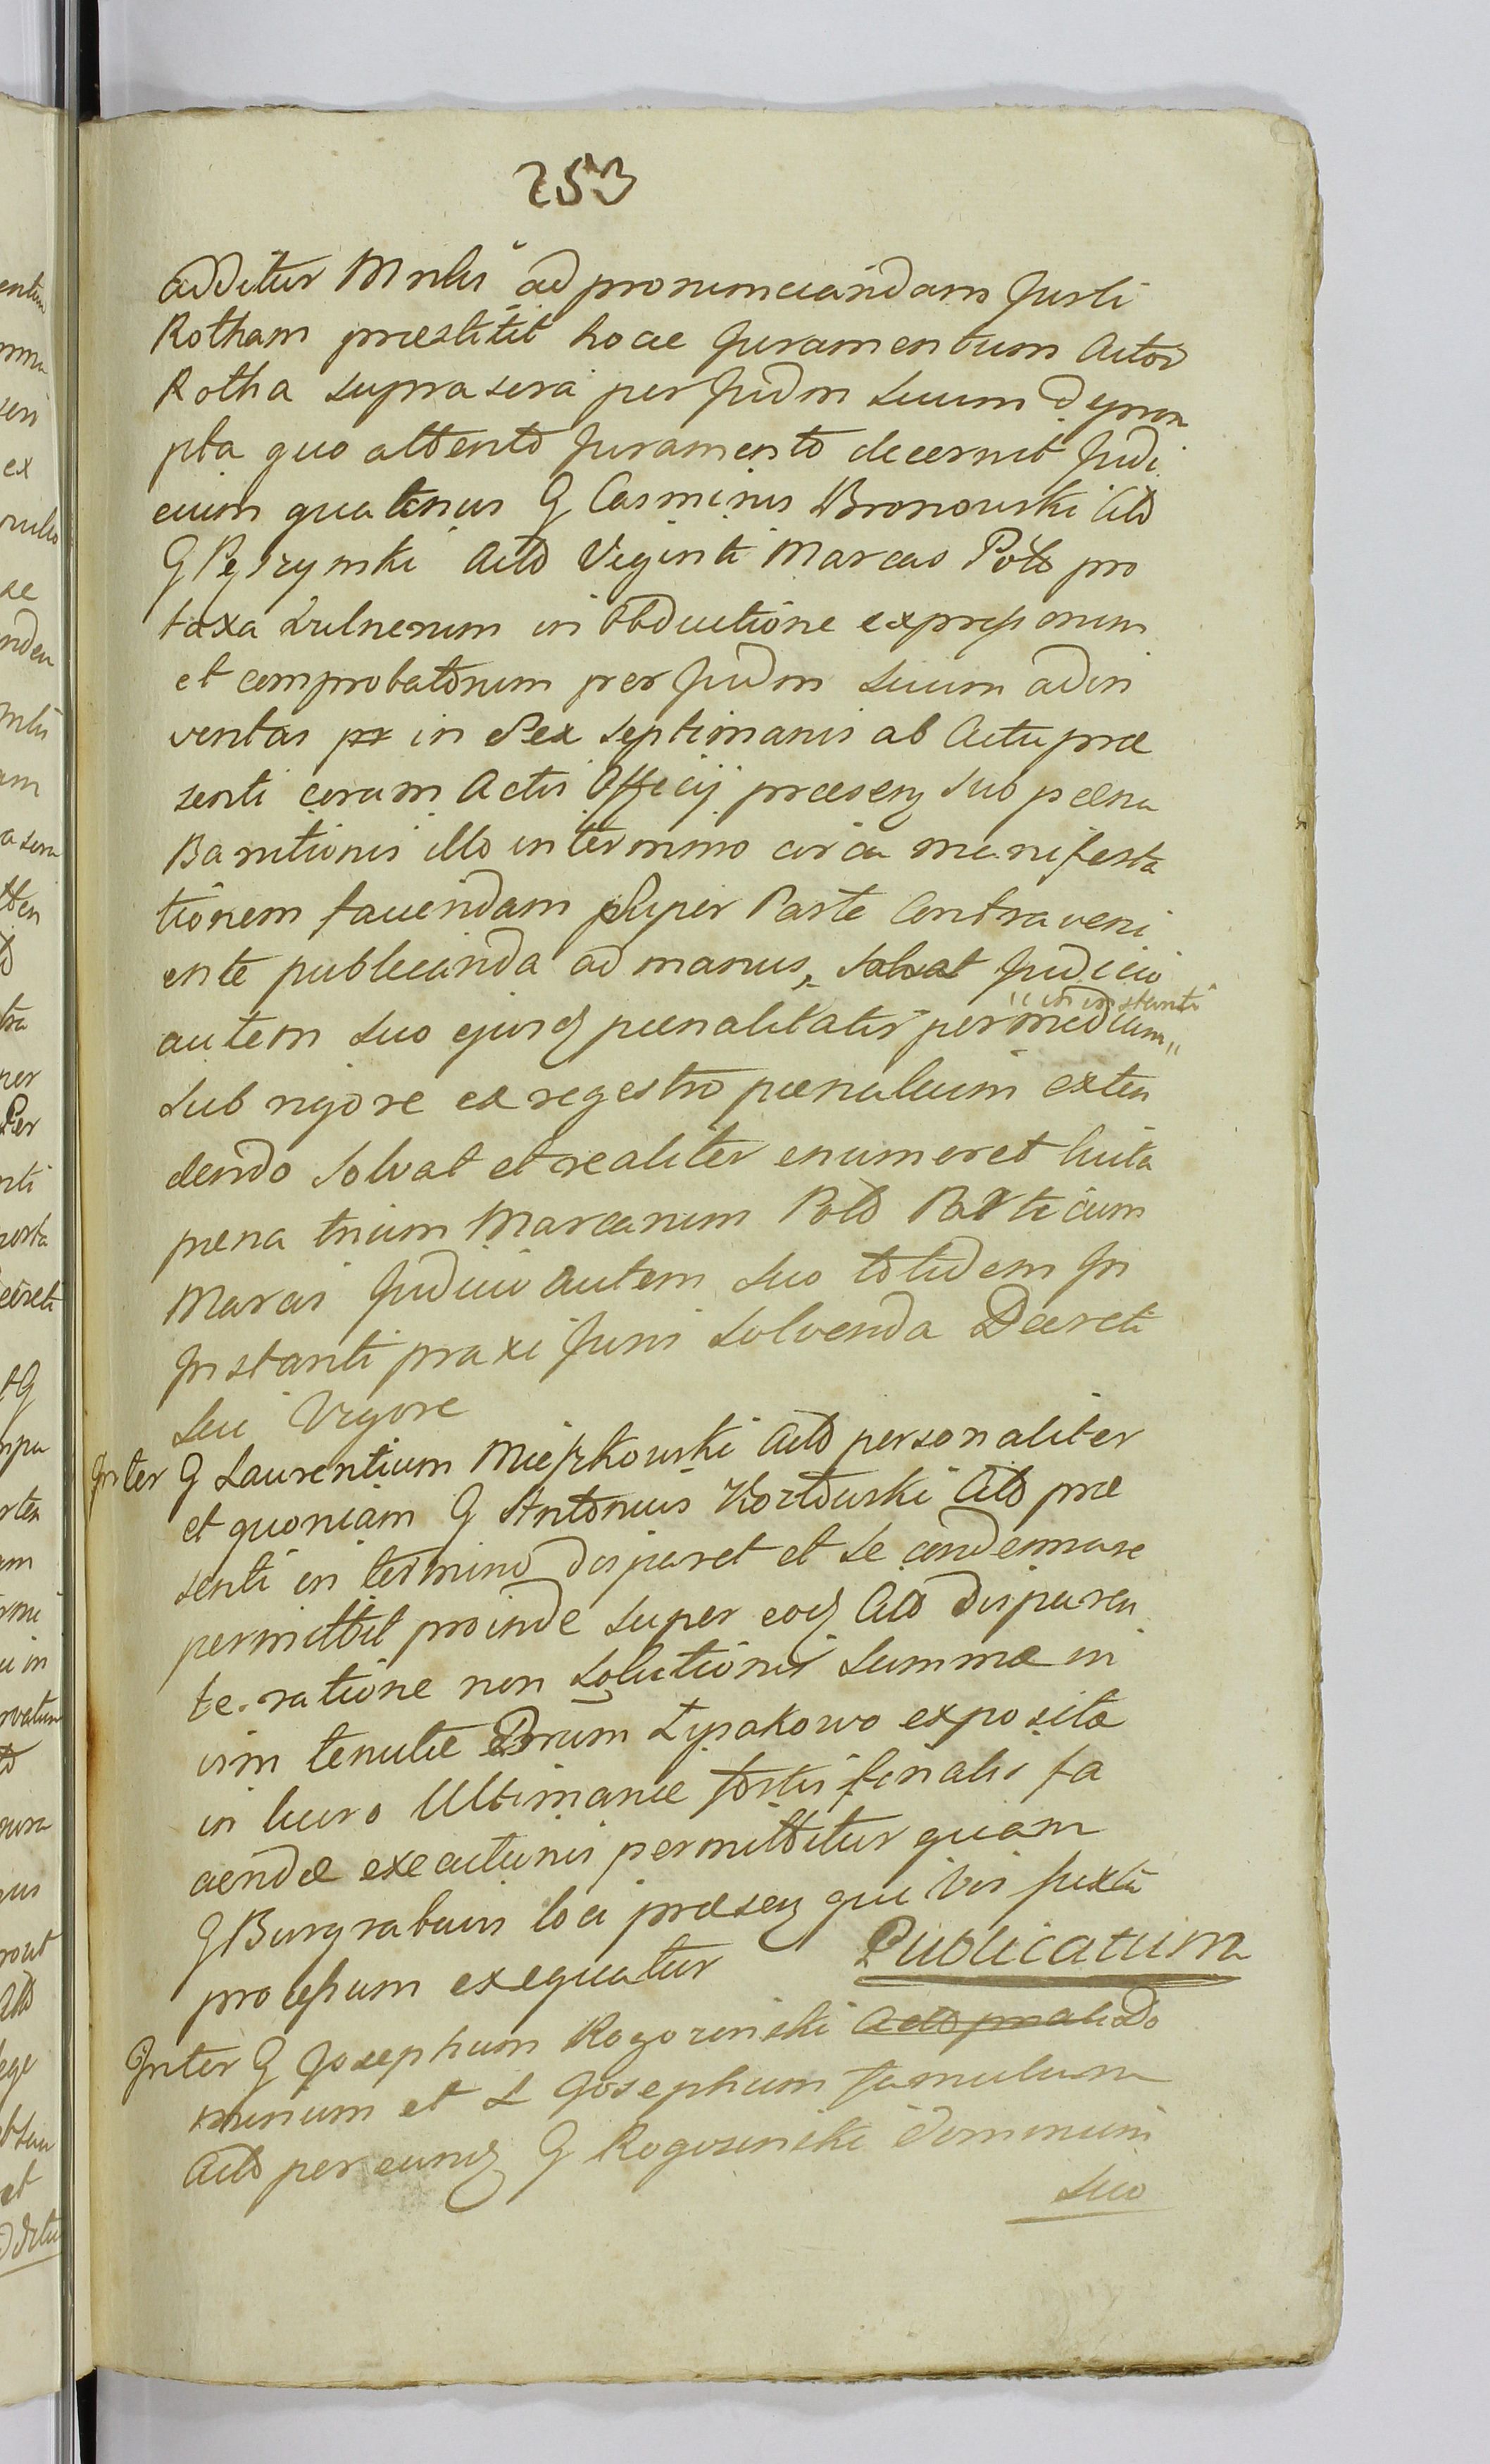 253
additur Mnlis ad pronunciandam Jurti
Rotham præstitit hocce Juramentum Actor
Rotha suprascra per Judm suum
pta quo attento Juramento decernit Judi
cium quatenus G Casimirus Bronowski Citto
G Pęgrzymski Acto Viginti Marcas Pols pro
taxa Vulnerum in Obductione expressorum
et comprobatorum per Judm suum adin
ventas in Sex septimanis ab Actu præ
senti coram Actis Officij præsenq sub pæna
Bannitionis illo in termino circa manifesta
tionem faciendam super Parte Contraveni
ente publicanda ad manus, Judicio
autem suo ejusq pœnalitatis per medium
"in instanti"
sub rigore ex regestro pœnalium exten
dendo Solvat et realiter enumeret luita
pœna trium Marcarum Pols Parti cum
Marcis Judicio autem suo totidem In
Instanti praxi Juris solvenda Decreti
sui Vigore
Inter G Laurentium Mieszkowski Acto personaliter
et quoniam G Antonius Kozłowski Citto præ
senti in termino disparet et se condemnare
permittit proinde super eoq Citto disparen
te ratione non solutionis summæ in
vim tenutæ Bnrum Łysakowo expositæ
in lucro Ultimariæ fortis finalis fa
ciendæ executionis permittitur quam
G Burgrabius loci præsenq qui vis juxta
processum exequatur Publicatum
Inter G Josephum Rogozinski Acto pnali Do
minum et L Josephum famulum
Acto per eunq G Rogozinski dominum
suo